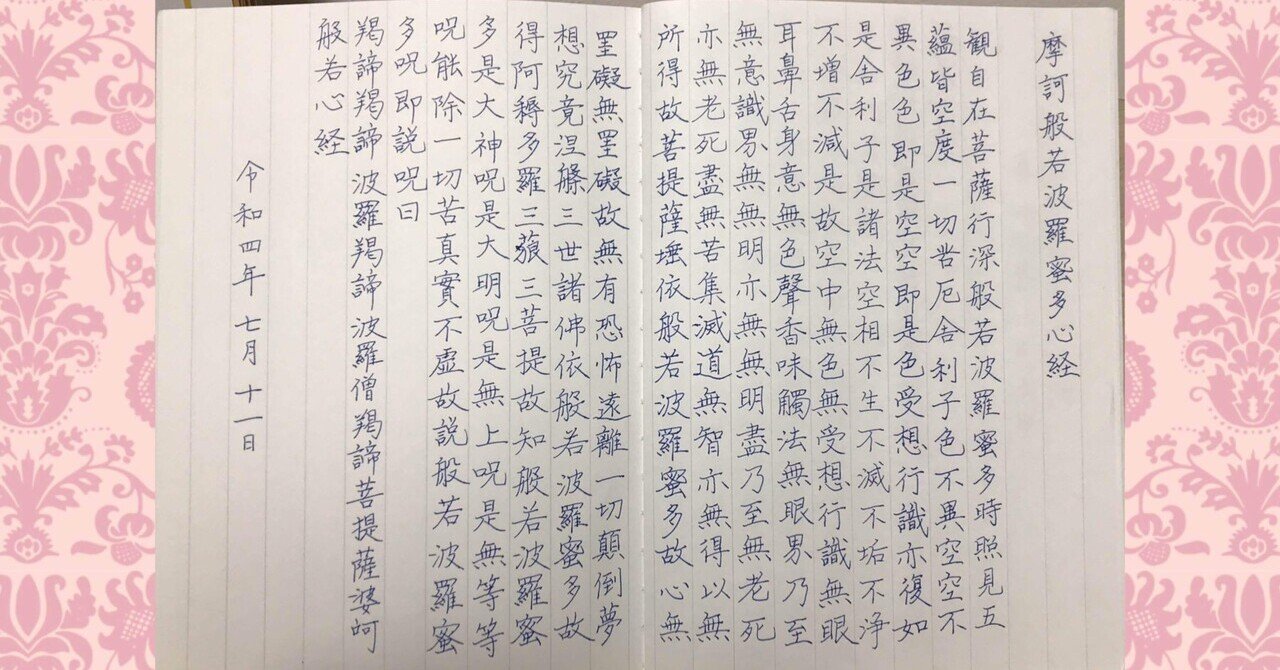 摩訶般若波羅蜜多心経
観自在菩薩行深般若波羅蜜多時照見五
蘊皆空度一切苦厄舎利子色不異空空不
異色色即是空空即是色受想行識亦復如
是舎利子是諸法空相不生不滅不垢不浄
不増不減是故空中無色無受想行識無眼
耳鼻舌身意無色聲香味觸法無眼界乃至
無意識界無無明亦無無明盡乃至無老死
亦無老死盡無苦集滅道無智亦無得以無
所得故菩提薩埵依般若波羅蜜多故心無
罣礙無罣礙故無有恐怖遠離一切顛倒夢
想究竟涅槃三世諸佛依般若波羅蜜多故
得阿耨多羅三藐三菩提故知般若波羅蜜
多是大神呪是大明呪是無上呪是無等等
呪能除一切苦真實不虚故説般若波羅蜜
多呪即説呪曰
羯諦羯諦波羅羯諦波羅僧羯諦菩提薩婆呵
般若心経
令和四年七月十一日